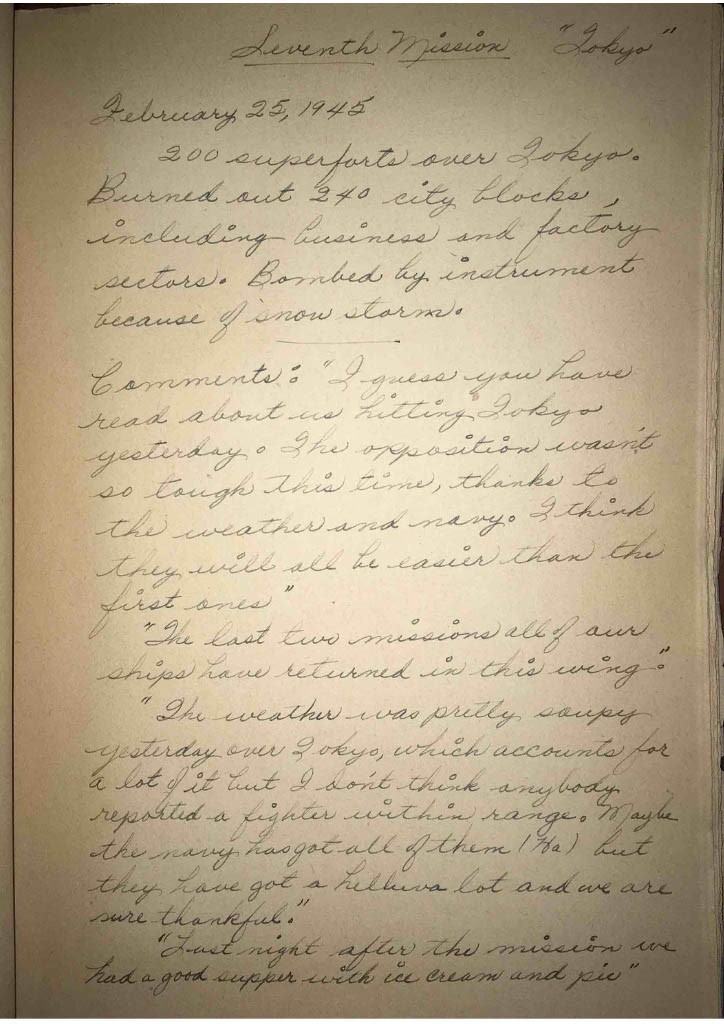 Seventh Mission "Tokyo"
February 25, 1945
200 superforts over Tokyo.
Burned out 240 city blocks,
including business and factory
sectors. Bombed by instrument
because of snow storm.
Comments: "I guess you have
read about us hitting Tokyo
yesterday. The opposition wasn't
so tough this time, thanks to
the weather and navy. I think
they will all be easier than the
first ones"
"The last two missions all of our
ships have returned in this wing."
"The weather was pretty soupy
yesterday over Tokyo, which accounts for
a lot of it but I don't think anybody
reported a fighter within range. Maybe
the navy has got all of them (Ha) but
they have got a helluva lot and we are
sure thankful."
"Last night after the mission we
had a good supper with ice cream and pie"